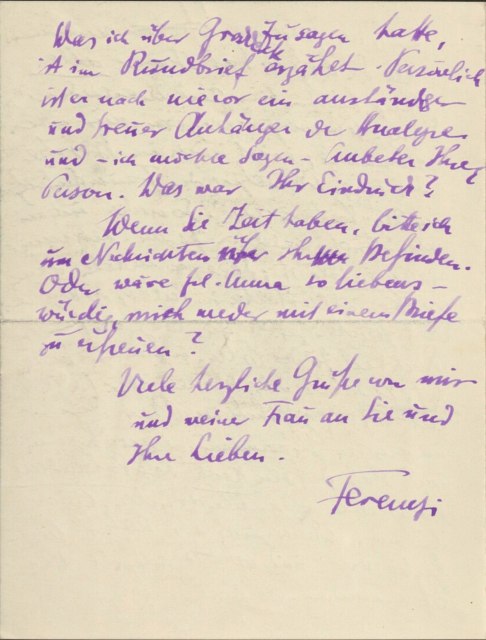 Was ich über Groddeck zu sagen hatte,
ist im Rundbrief erzählt. Persönlich
ist er nach wie vor ein anständiger
und treuer Anhänger der Analyse
und – ich möchte sagen – Anbeter Ihrer
Person. Was war Ihr Eindruck?
Wenn Sie Zeit haben, bitte ich
um Nachrichten über Ihr Befinden.
Oder wäre frl. Anna so liebens-
würdig, mich wieder mit einem Briefe
zu erfreuen?
Viele herzliche Grüße von mir
und meiner Frau an Sie und
Ihre Lieben.
Ferenczi